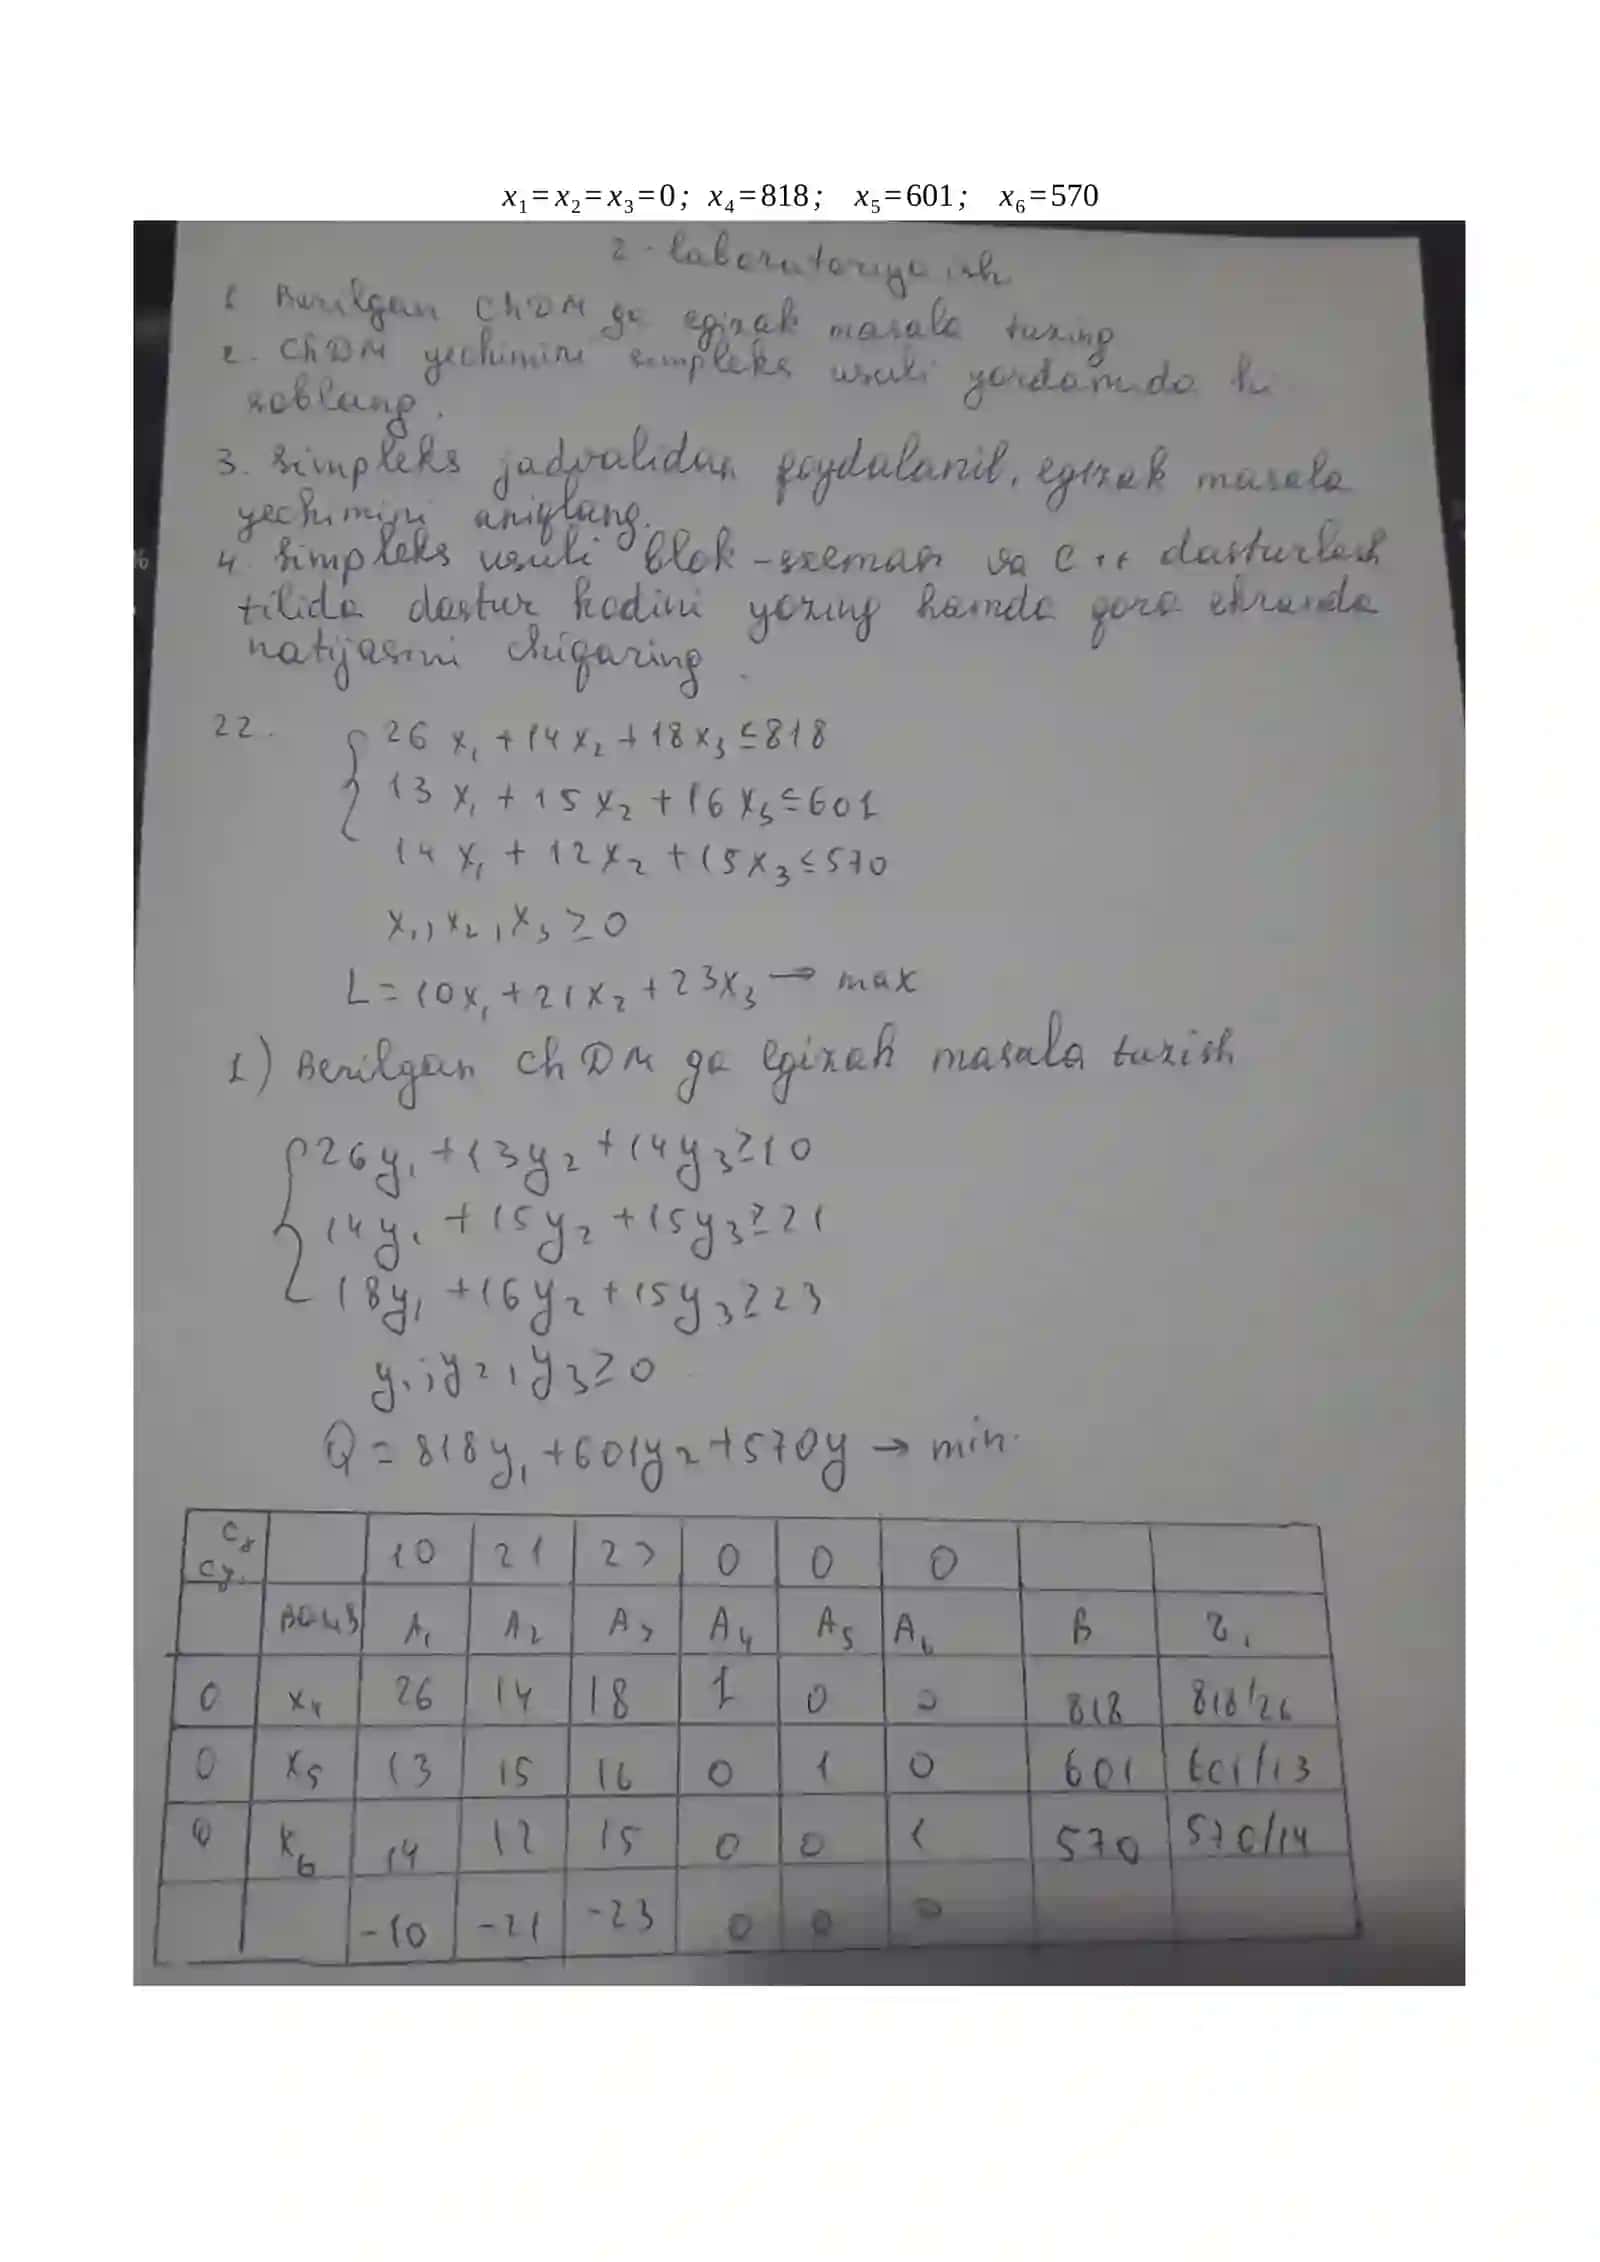 x₁=x₂=x₃=0; x₄=818; x₅=601; x₆=570
2-laboratoriya ish
1 Berilgan ChDM ga egizak masala tuzing
2. ChDM yechimini simpleks usuli yordamida hi
soblang.
3. Simpleks jadvalidan foydalanib, egizak masala
yechimini aniqlang.
4. Simpleks usuli blok-sxemasi va C++ dasturlash
tilida dastur kodini yozing hamda qora ekranda
natijasini chiqaring.
22. 26x₁+14x₂+18x₃≤818
13x₁+15x₂+16x₃≤601
14x₁+12x₂+15x₃≤570
x₁,x₂,x₃≥0
L=10x₁+21x₂+23x₃→max
1) Berilgan ChDM ga egizak masala tuzish
26y₁+13y₂+14y₃≥10
14y₁+15y₂+15y₃≥21
18y₁+16y₂+15y₃≥23
y₁;y₂,y₃≥0
Q=818y₁+601y₂+570y→min.
10 21 23 0 0 0
A₁ A₂ A₃ A₄ A₅ A₆ B
0 x₄ 26 14 18 1 0 0 818 818/26
0 x₅ 13 15 16 0 1 0 601 601/13
0 x₆ 14 12 15 0 0 1 570 570/14
-10 -21 -23 0 0 0